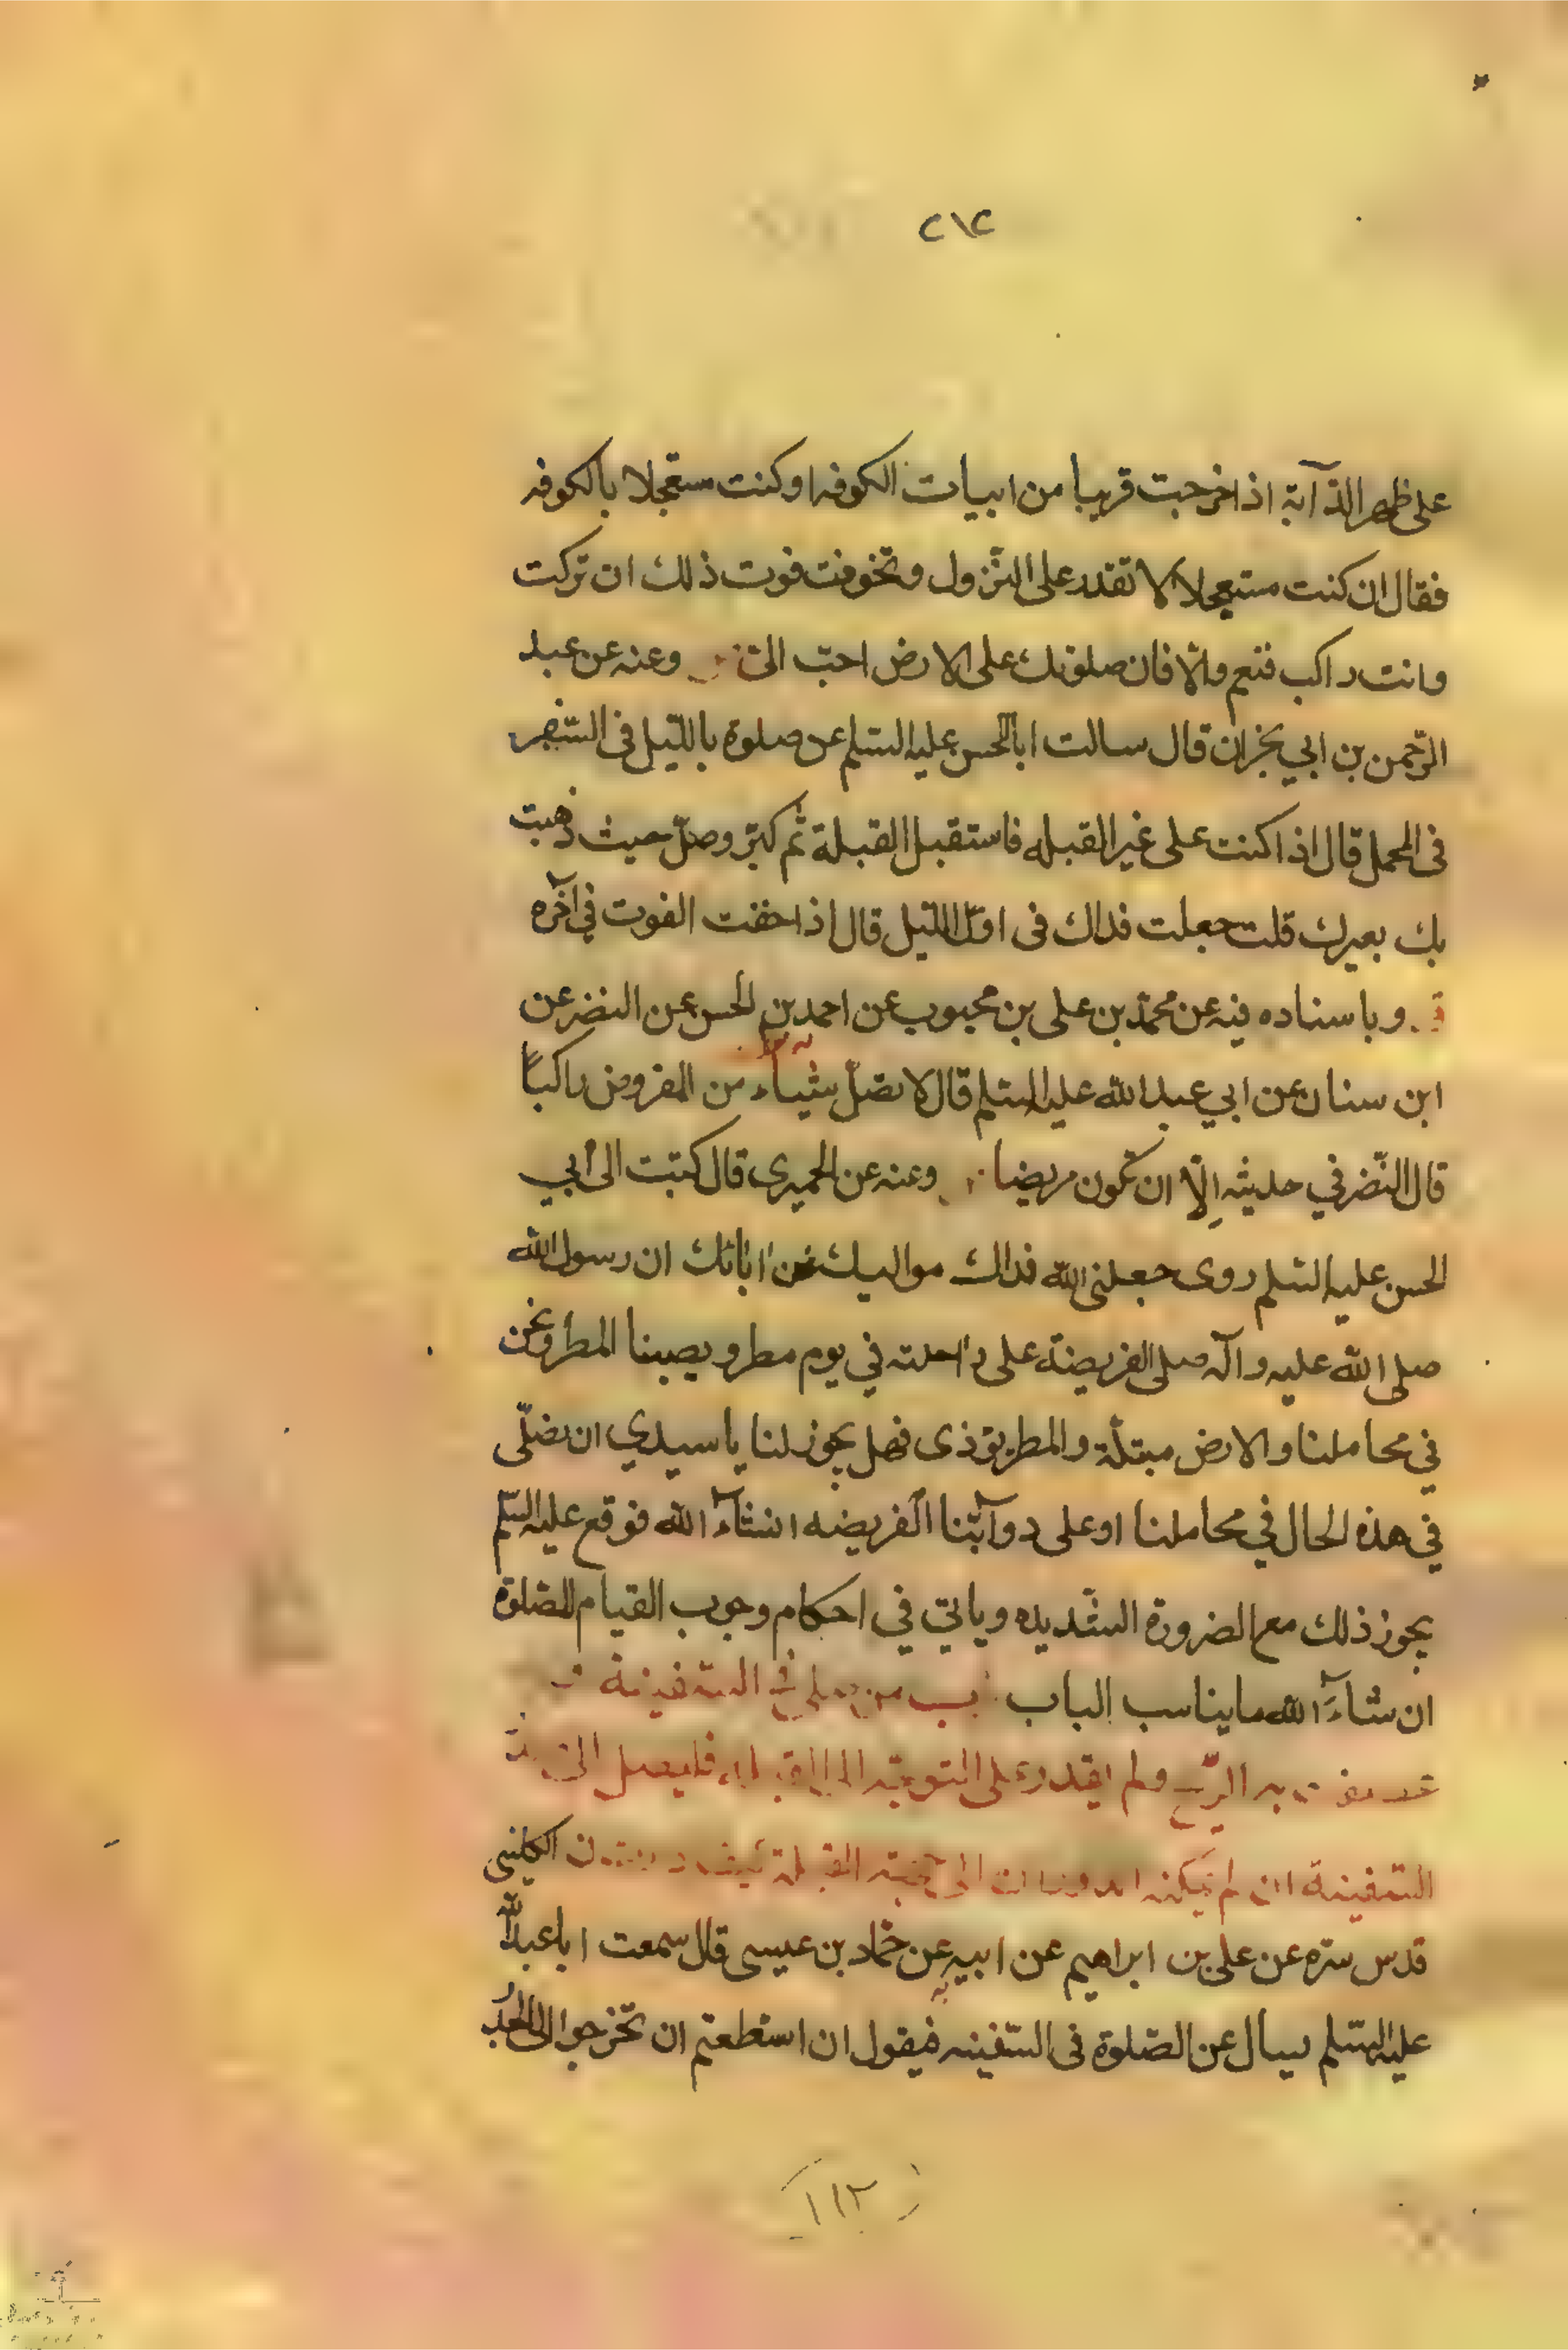 ٢١٢
على ظهر الدّآبة اذا خرجت قريبا من ابيات الكوفه او كنت مستعجلا بالكوفه
فقال ان كنت مستعجلا لا تقدر على النّزول وتخوفت فوت ذلك ان تركت
وانت راكب فنعم والّا فان صلوتك على الارض احبّ الىّ وعنه عن عبد
الرّحمن بن ابي نجران قال سالت اباالحسن عليه السّلم عن صلوة باللّيل فى السّفر
فى المحمل قال اذا كنت على غير القبله فاستقبل القبلة ثم كبّر وصلّ حيث ذهبت
بك بعيرك قلت جعلت فداك فى اوّل اللّيل قال اذا خفت الفوت في آخره
وباسناده فيه عن محمّد بن على بن محبوب عن احمد بن الحسن عن النضر عن
ابن سنان عن ابي عبد الله عليه السّلم قال لا تصلّ شيئاء من المفروض راكبًا
قال النّضر في حديثه اِلّا ان تكون مريضا وعنه عن الحميرى قال كتبت الى أبي
الحسن عليه السّلم روى جعلنى الله فداك مواليك عن ابائك ان رسول الله
صلى الله عليه وآله صلى الفريضة على راحلته في يوم مطر ويصيبنا المطر ونحن
في محاملنا والارض مبتلّة والمطر يؤذى فهل يجوز لنا يا سيدي ان نصلّى
في هذه الحال في محاملنا او على دوآبّنا الفريضه انشآء الله فوقع عليه السّلم
يجوز ذلك مع الضرورة الشّديده وياتي في احكام وجوب القيام للصّلوة
ان شآء الله ما يناسب الباب باب من صلى في السّفينة
به الرّيح ولم يقدر على التوجّه الى القبلة فليصل الى
السّفينة ان لم يمكنه الى القبلة الكلينى
قدس سرّه عن على بن ابراهيم عن ابيه عن حمّاد بن عيسى قال سمعت ابا عبدالله
عليه السّلم يسال عن الصّلوة فى السّفينه فيقول ان استطعتم ان تخرجوا الى الجُدّ
١١٢